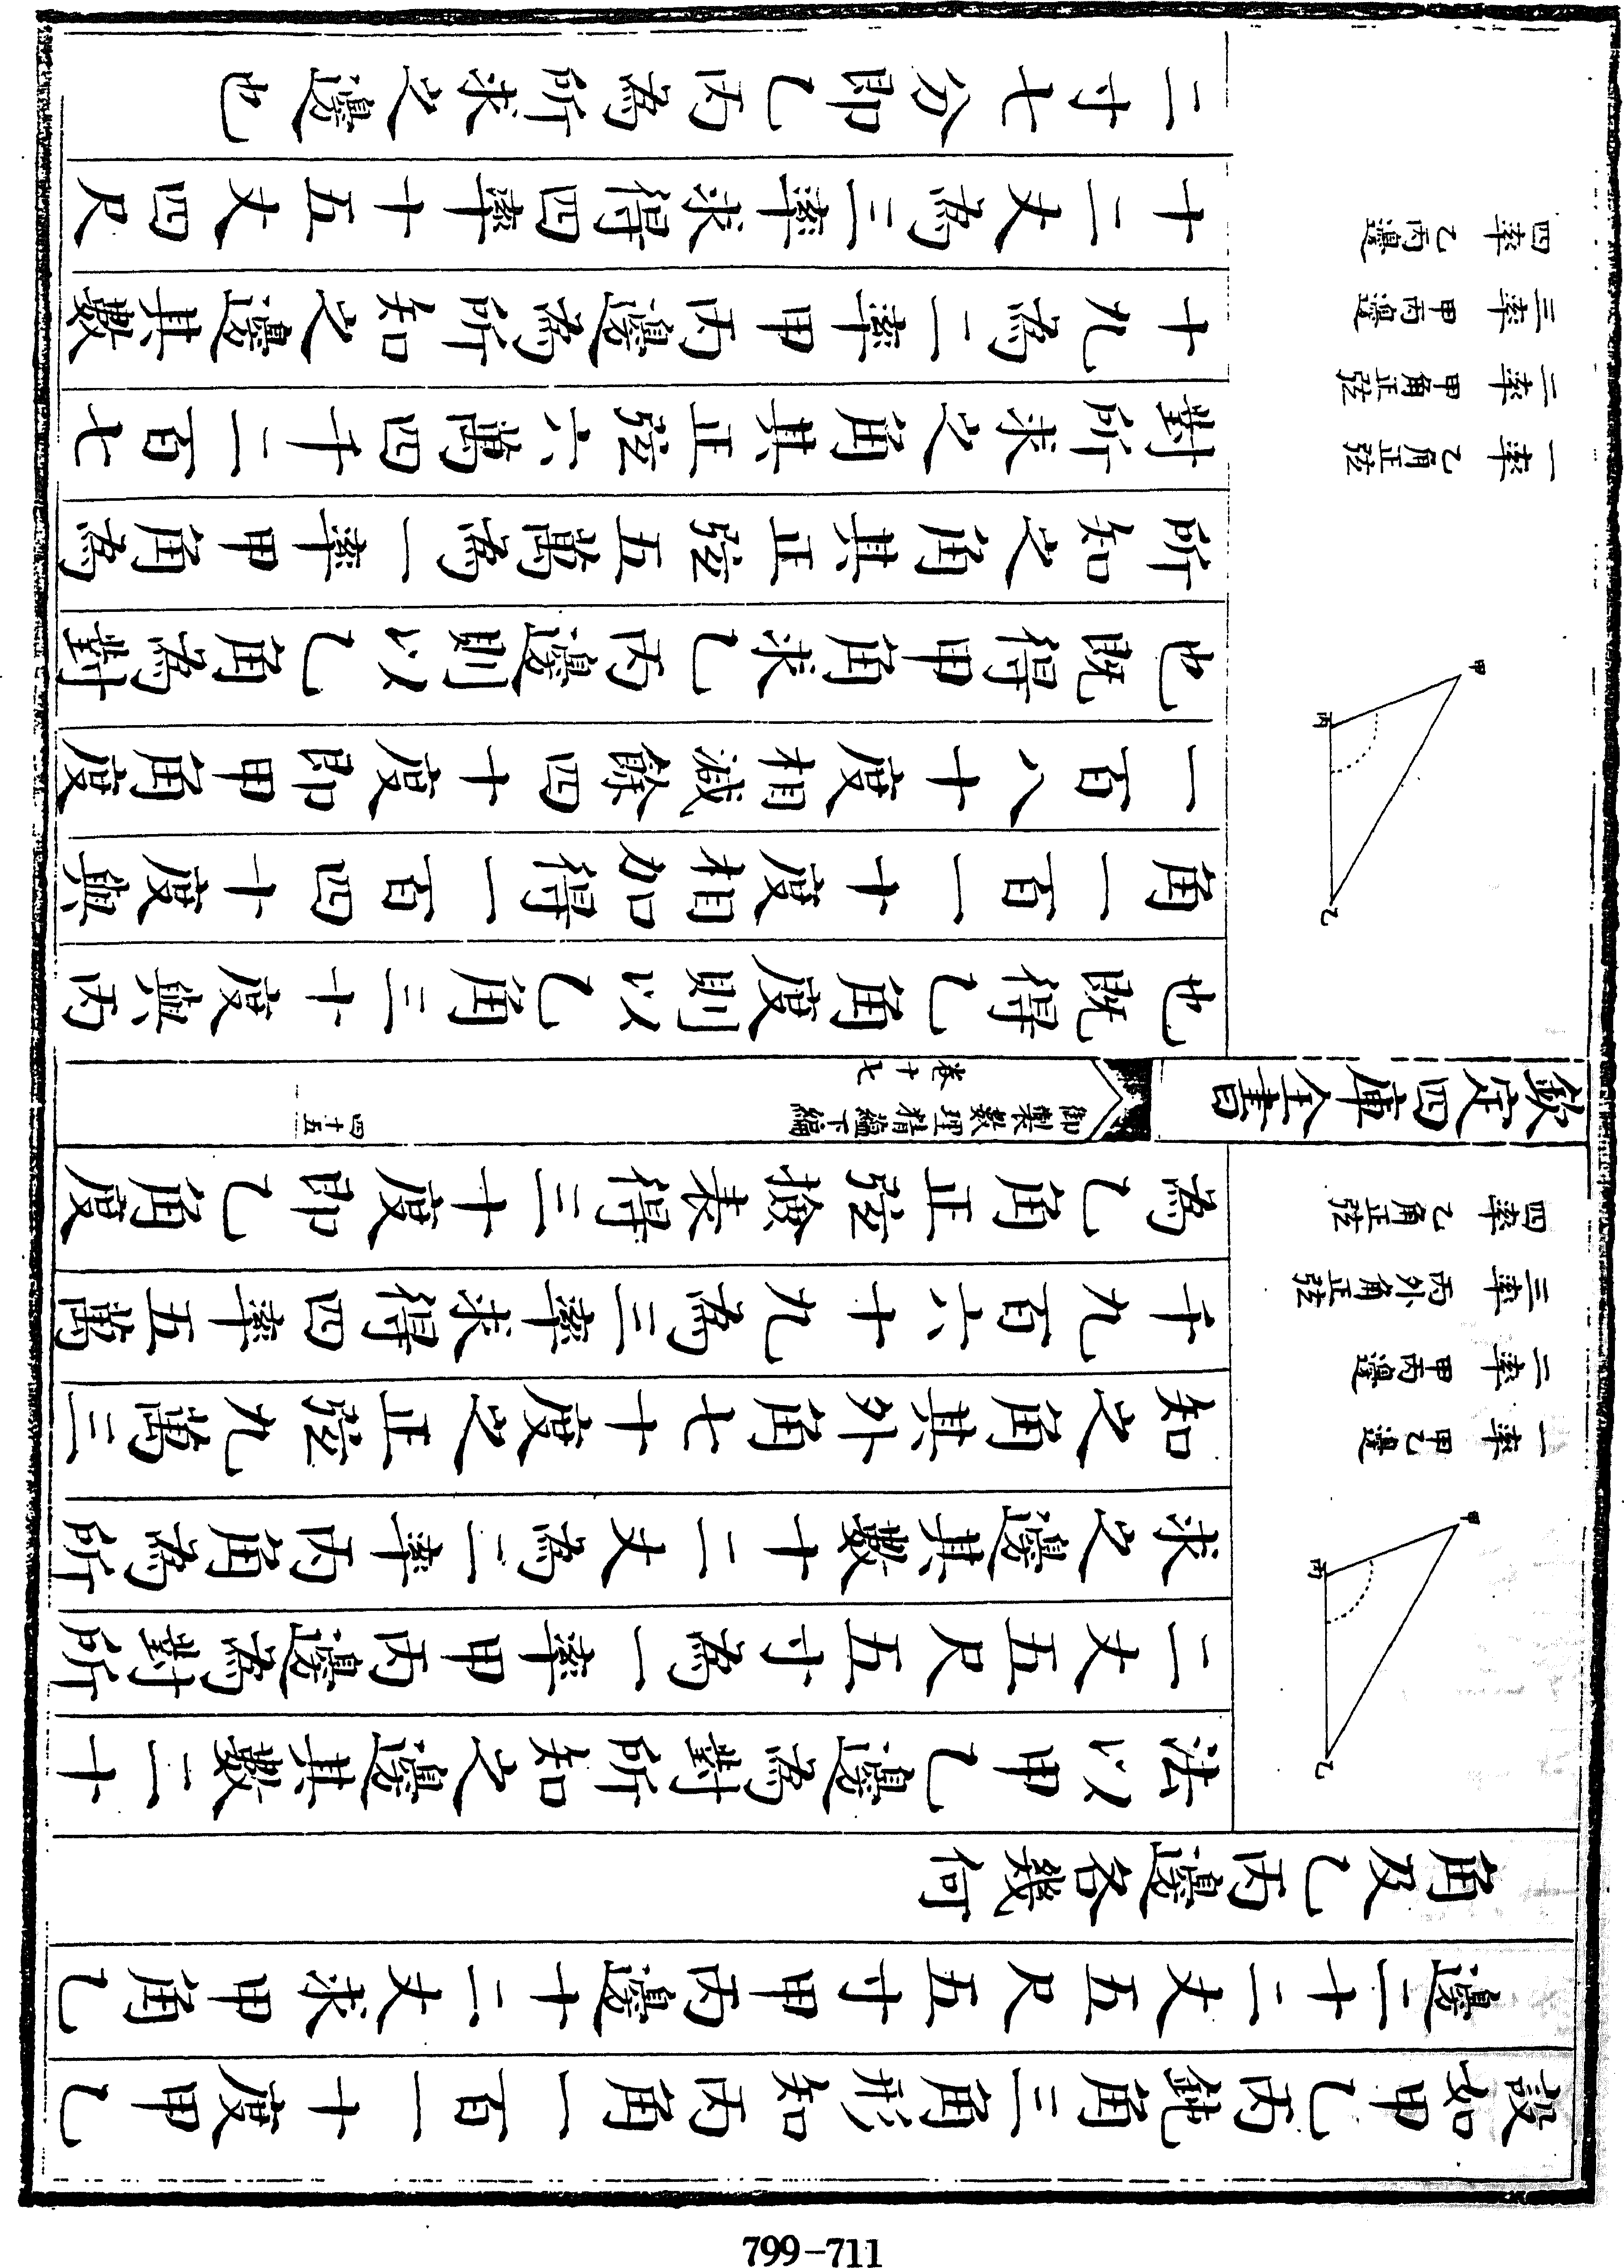 設如甲乙丙鈍角三角形知丙角一百一十度甲乙
邊二十二丈五尺五寸甲丙邊十二丈求甲角乙
角及乙丙邊各幾何
甲
丙
乙
一率 甲乙邊
二率 甲丙邊
三率 丙外角正弦
四率 乙角正弦
法以甲乙邊為對所知之邊其數二十
二丈五尺五寸為一率甲丙邊為對所
求之邊其數十二丈為二率丙角為所
知之角其外角七十度之正弦九萬三
千九百六十九為三率求得四率五萬
為乙角正弦檢表得三十度即乙角度
欽定四庫全書
御製數理精蘊下編
卷十七
四十五
甲
丙
乙
一率 乙角正弦
二率 甲角正弦
三率 甲丙邊
四率 乙丙邊
也既得乙角度則以乙角三十度與丙
角一百一十度相加得一百四十度與
一百八十度相減餘四十度即甲角度
也既得甲角求乙丙邊則以乙角為對
所知之角其正弦五萬為一率甲角為
對所求之角其正弦六萬四千二百七
十九為二率甲丙邊為所知之邊其數
十二丈為三率求得四率十五丈四尺
二寸七分即乙丙為所求之邊也
799-711